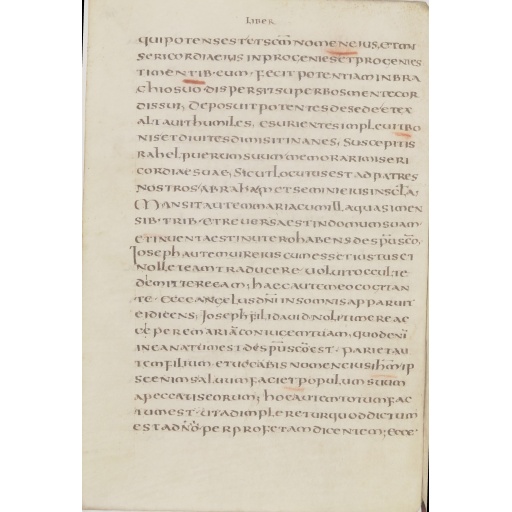 LIBER
quipotensestetscm̄nomeneius,etmi
sericordiaeius inprogeniesetprogenies
timentib·eum·fecitpotentiaminbra
chiosuo·dispersitsuperbosmentecor
dissui, deposuitpotentesdesedeetex
altauithumiles, esurientesimpleuitbo
nisetdiuitesdimisitinanes, suscepitis
rahelpuerumsuummemorarimiseri
cordiaesuae, sicutlocutusestadpatres
nostrosabrahametseminieiusinscla,
Mansitautemmariacumillaquasimen
sib·trib·etreuersaestindomumsuam·
etinuentaestinuterohabensdespuscō,
Iosephautemuireiuscumessetiustuset
nolleteamtraducere·uoluitocculte
dimittereeam; haecautemeocogitan
te·ecceangelusdn̄iinsomnisapparuit
eidicens; Iosephfilidauidnolitimereac
cipere mariāconiugemtuam,quodenī
ineanatumestdespuscōest·parietau
temfilium·etuocabisnomeneiusihm̄ip
seenimsaluumfacietpopulumsuum
apeccatiseorum; hocautemtotumfac
tumest·utadimplereturquoddictum
estadnō·perprofetamdicentem; ecce·